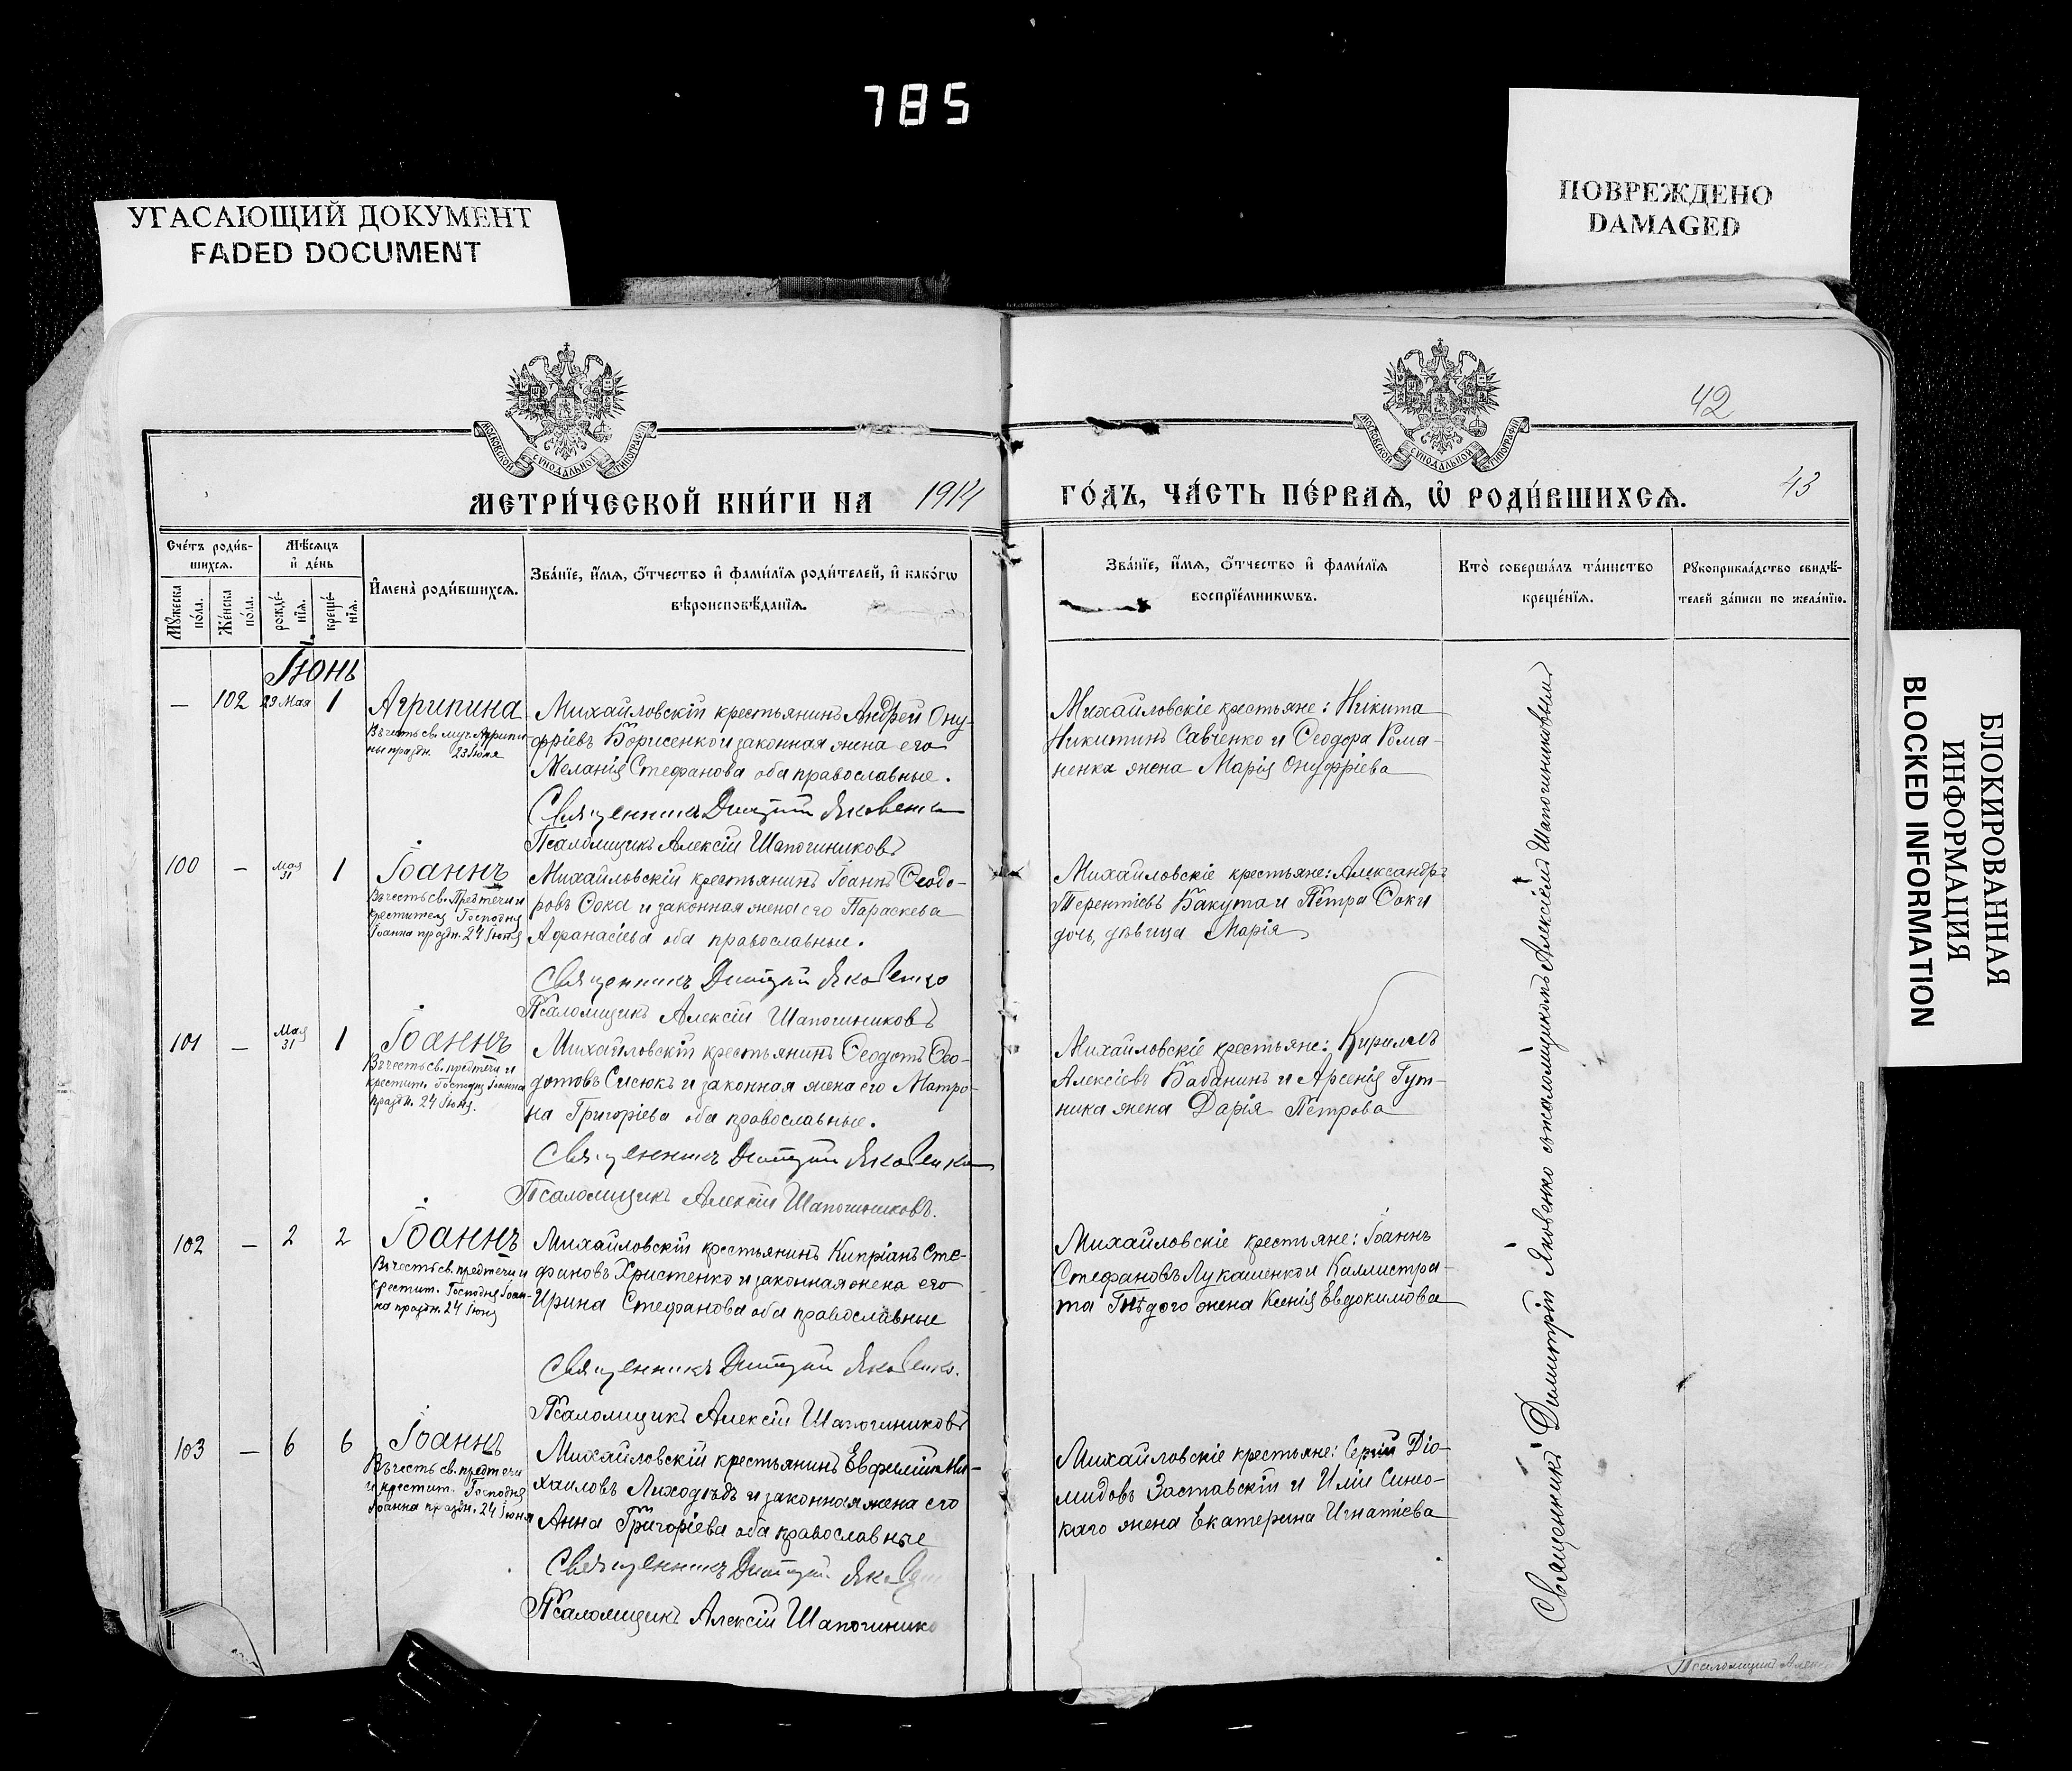 785
УГАСАЮЩИЙ ДОКУМЕНТ
FADED DOCUMENT
ПОВРЕЖДЕНО
DAMAGED
БЛОКИРОВАННАЯ
ИНФОРМАЦИЯ
BLOCKED INFORMATION
42
43
МОСКОВСКОЙ СѴНОДАЛЬНОЙ ТИПОГРАФІИ
МОСКОВСКОЙ СѴНОДАЛЬНОЙ ТИПОГРАФІИ
МЕТРИ́ЧЕСКОЙ КНИ́ГИ НА 1914
ГО́ДЪ, ЧА́СТЬ ПЕ́РВАѦ, Ѽ РОДИ́ВШИХСѦ.
Сче́тъ роди́в-
шихсѧ.
Мѣ́сѧцъ
и҆ де́нь
Мꙋ́жеска
по́ла.
Же́нска
по́ла.
рожде́-
нїѧ.
креще́-
нїѧ.
И҆мена̀ роди́вшихсѧ.
Зва́нїе, и҆́мѧ, ѻ҆́тчество и҆ фами́лїѧ роди́телей, и҆ како́гѡ
вѣроисповѣ́данїѧ.
Зва́нїе, и҆́мѧ, ѻ҆́тчество и҆ фами́лїѧ
воспрїе́мникѡвъ.
Кто̀ соверша́лъ та́инство
креще́нїѧ.
Рꙋкоприкла́дство свидѣ́-
телей за́писи по жела́нїю.
Іюнь
— 102 29 Мая 1 Агрипина
Въ честь св. муч. Агрипи-
ны праздн. 23 Іюня
Михайловскій крестьянинъ Андрей Ону-
фріевъ Борисенко и законная жена его
Меланія Стефанова оба православные.
Священникъ Димитрій Яковенко
Псаломщикъ Алексій Шапошниковъ
Михайловскіе крестьяне: Никита
Никитинъ Савченко и Ѳеодора Рома-
ненка жена Марія Онуфріева
100 — Мая 31 1 Іоаннъ
Въ честь св. Предтечи и
крестителя Господня
Іоанна праздн. 24 Іюня
Михайловскій крестьянинъ Іоаннъ Ѳеодо-
ровъ Сока и законная жена его Параскева
Афанасіева оба православные.
Священникъ Димитрій Яковенко
Псаломщикъ Алексій Шапошниковъ
Михайловскіе крестьяне: Александръ
Терентіевъ Бакута и Петра Соки
дочь девица Марія
101 — Мая 31 1 Іоаннъ
Въ честь св. предтечи и
крестит. Господня Іоанна
праздн. 24 Іюня.
Михайловскій крестьянинъ Ѳеодотъ Ѳео-
дотовъ Сисюкъ и законная жена его Матро-
на Григоріева оба православные.
Священникъ Димитрій Яковенко
Псаломщикъ Алексій Шапошниковъ.
Михайловскіе крестьяне: Кириллъ
Алексіевъ Бабанинъ и Арсенія Гут-
ника жена Дарія Петрова
102 — 2 2 Іоаннъ
Въ честь св. предтечи и
крестит. Господня Іоан-
на праздн. 24 Іюня
Михайловскій крестьянинъ Кипріанъ Сте-
фановъ Христенко и законная жена его
Ирина Стефанова оба православные
Священникъ Димитрій Яковенко.
Псаломщикъ Алексій Шапошниковъ
Михайловскіе крестьяне: Іоаннъ
Стефановъ Лукашенко и Каллистра-
та Гнѣдого жена Ксенія Евдокимова
103 — 6 6 Іоаннъ
Въ честь св. предтечи
и крестит. Господня
Іоанна праздн. 24 Іюня
Михайловскій крестьянинъ Евфимій Ми-
хаиловъ Лиходѣдъ и законная жена его
Анна Григоріева оба православные
Священникъ Димитрій
Псаломщикъ Алексій Шапошнико
Михайловскіе крестьяне: Сергій Діо-
мидовъ Заставскій и Иліи Синео-
каго жена Екатерина Игнатіева
Священникъ Димитрій Яковенко съ псаломщикомъ Алексіемъ Шапошниковымъ
Псаломщикъ Алек